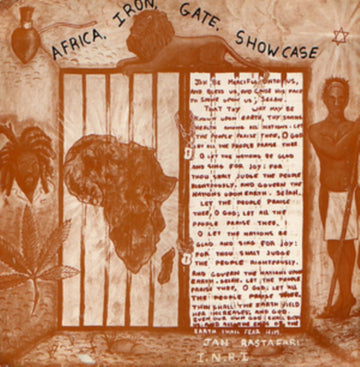 AFRICA, IRON, GATE, SHOWCASE
JAH BE MERCIFUL UNTO US,
AND BLESS US, AND CAUSE HIS FACE
TO SHINE UPON US; SELAH.
THAT THY WAY MAY BE
KNOWN UPON EARTH, THY SAVING
HEALTH AMONG ALL NATIONS. LET
THE PEOPLE PRAISE THEE, O GOD
LET ALL THE PEOPLE PRAISE THEE
O LET THE NATIONS BE GLAD
AND SING FOR JOY: FOR
THOU SHALT JUDGE THE PEOPLE
RIGHTEOUSLY, AND GOVERN THE
NATIONS UPON EARTH. SELAH.
LET THE PEOPLE PRAISE
THEE, O GOD; LET ALL THE
PEOPLE PRAISE THEE.
O LET THE NATIONS BE
GLAD AND SING FOR JOY:
FOR THOU SHALT JUDGE
THE PEOPLE RIGHTEOUSLY.
AND GOVERN THE NATIONS UPON
EARTH. SELAH. LET THE PEOPLE
PRAISE THEE, O GOD; LET ALL
THE PEOPLE PRAISE THEE,
THEN SHALL THE EARTH YIELD
HER INCREASE; AND GOD,
EVEN OUR OWN GOD SHALL BLESS
US, AND ALL THE ENDS OF THE
EARTH SHALL FEAR HIM.
JAH RASTAFARI
I.N.R.I.